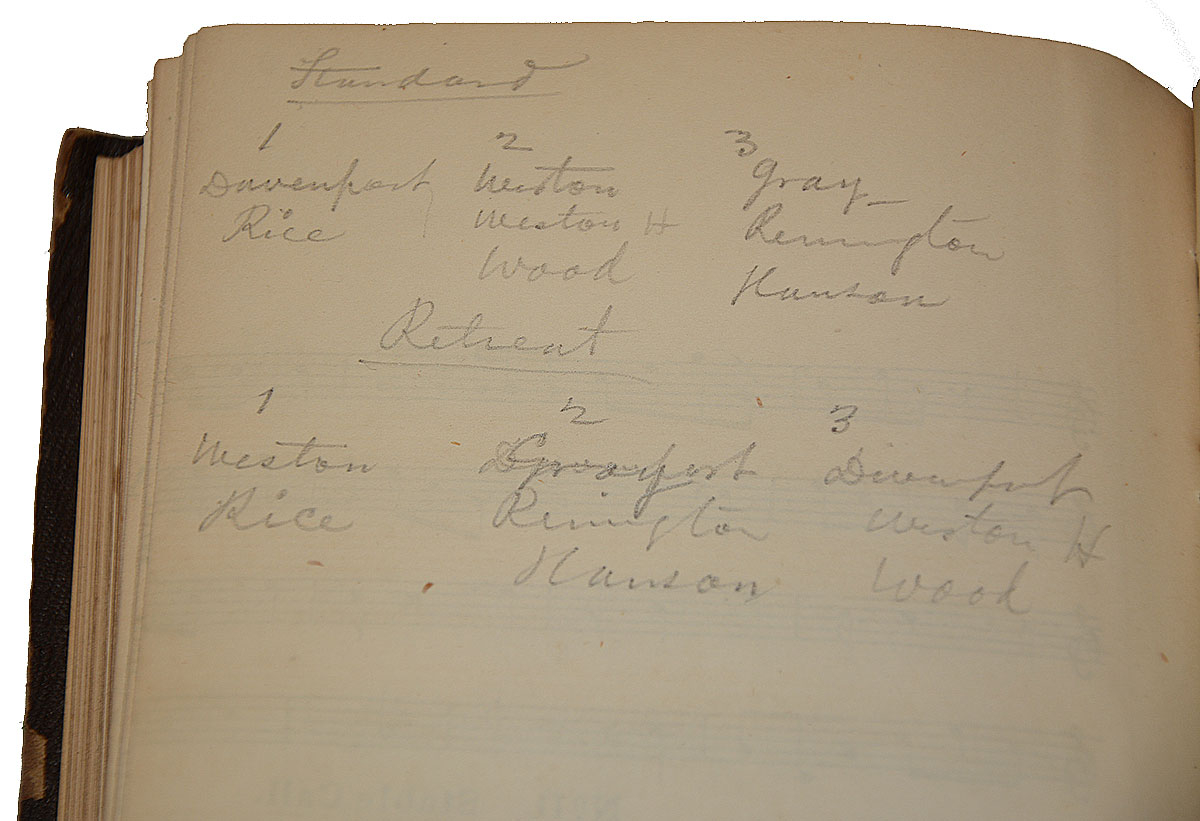 Standard
1 2 3
Davenport Weston Gray
Rice Weston H Remington
Wood Hanson
Retreat
1 2 3
Weston Gray Davenport
Rice Remington Weston H
Hanson Wood